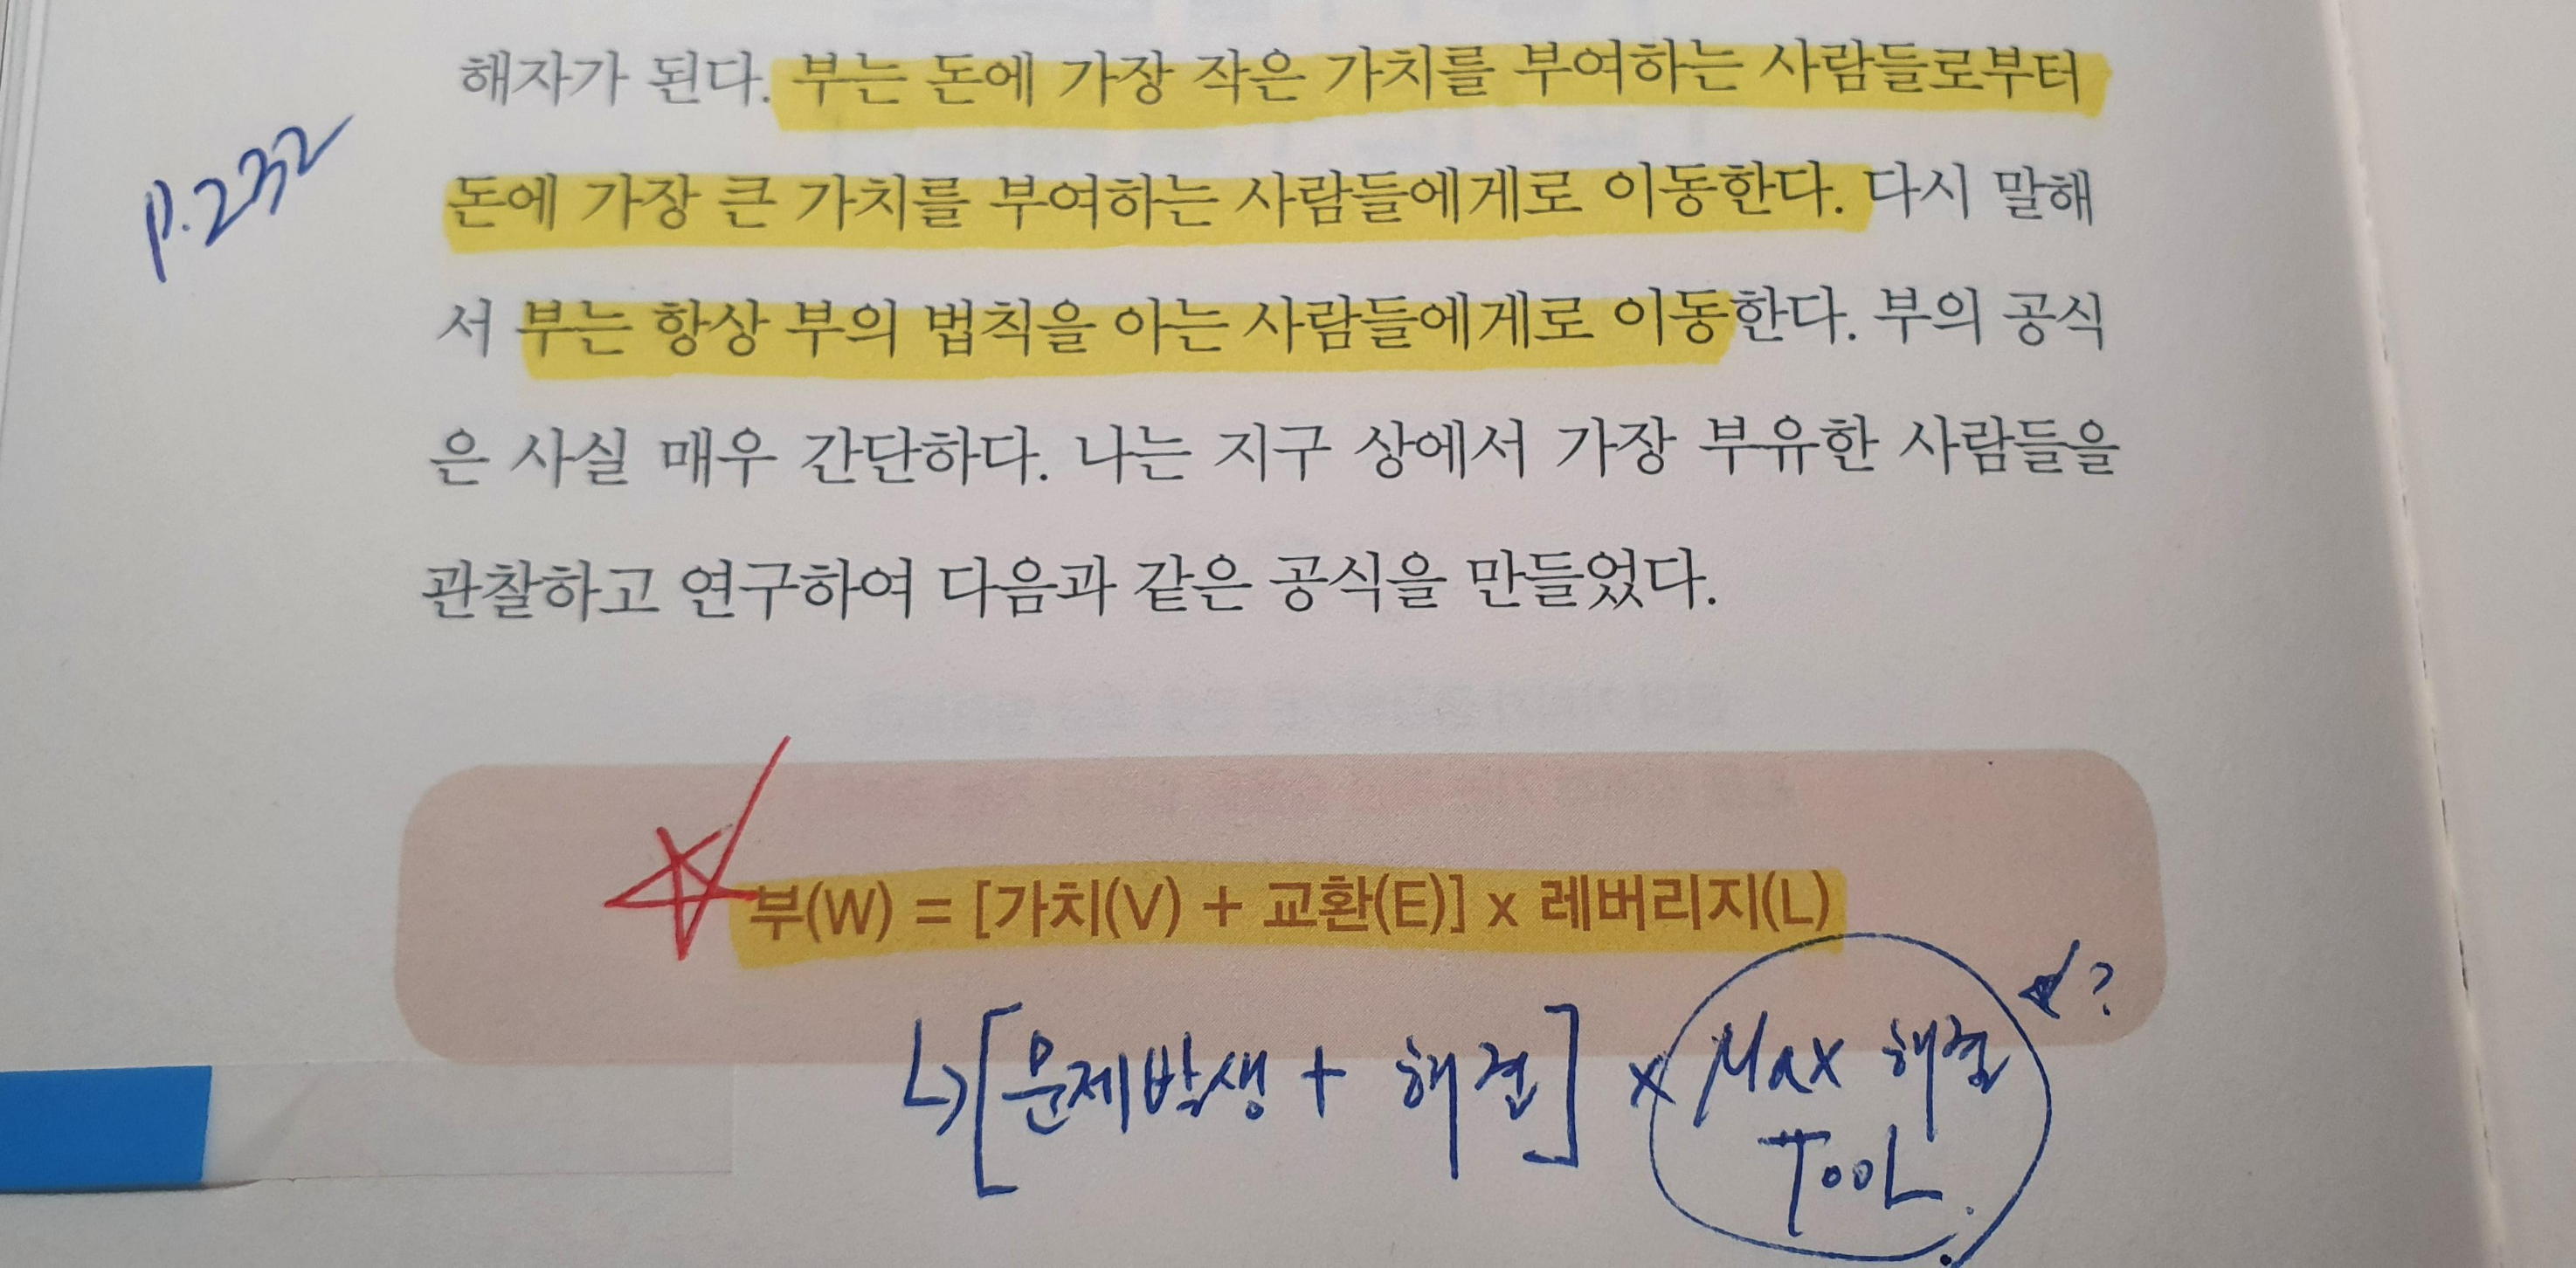 해자가 된다. 부는 돈에 가장 작은 가치를 부여하는 사람들로부터
p.232
돈에 가장 큰 가치를 부여하는 사람들에게로 이동한다. 다시 말해
서 부는 항상 부의 법칙을 아는 사람들에게로 이동한다. 부의 공식
은 사실 매우 간단하다. 나는 지구 상에서 가장 부유한 사람들을
관찰하고 연구하여 다음과 같은 공식을 만들었다.
부(W) = [가치(V) + 교환(E)] x 레버리지(L)
↳ [문제발생 + 해결] x Max 해결 ?
TOOL